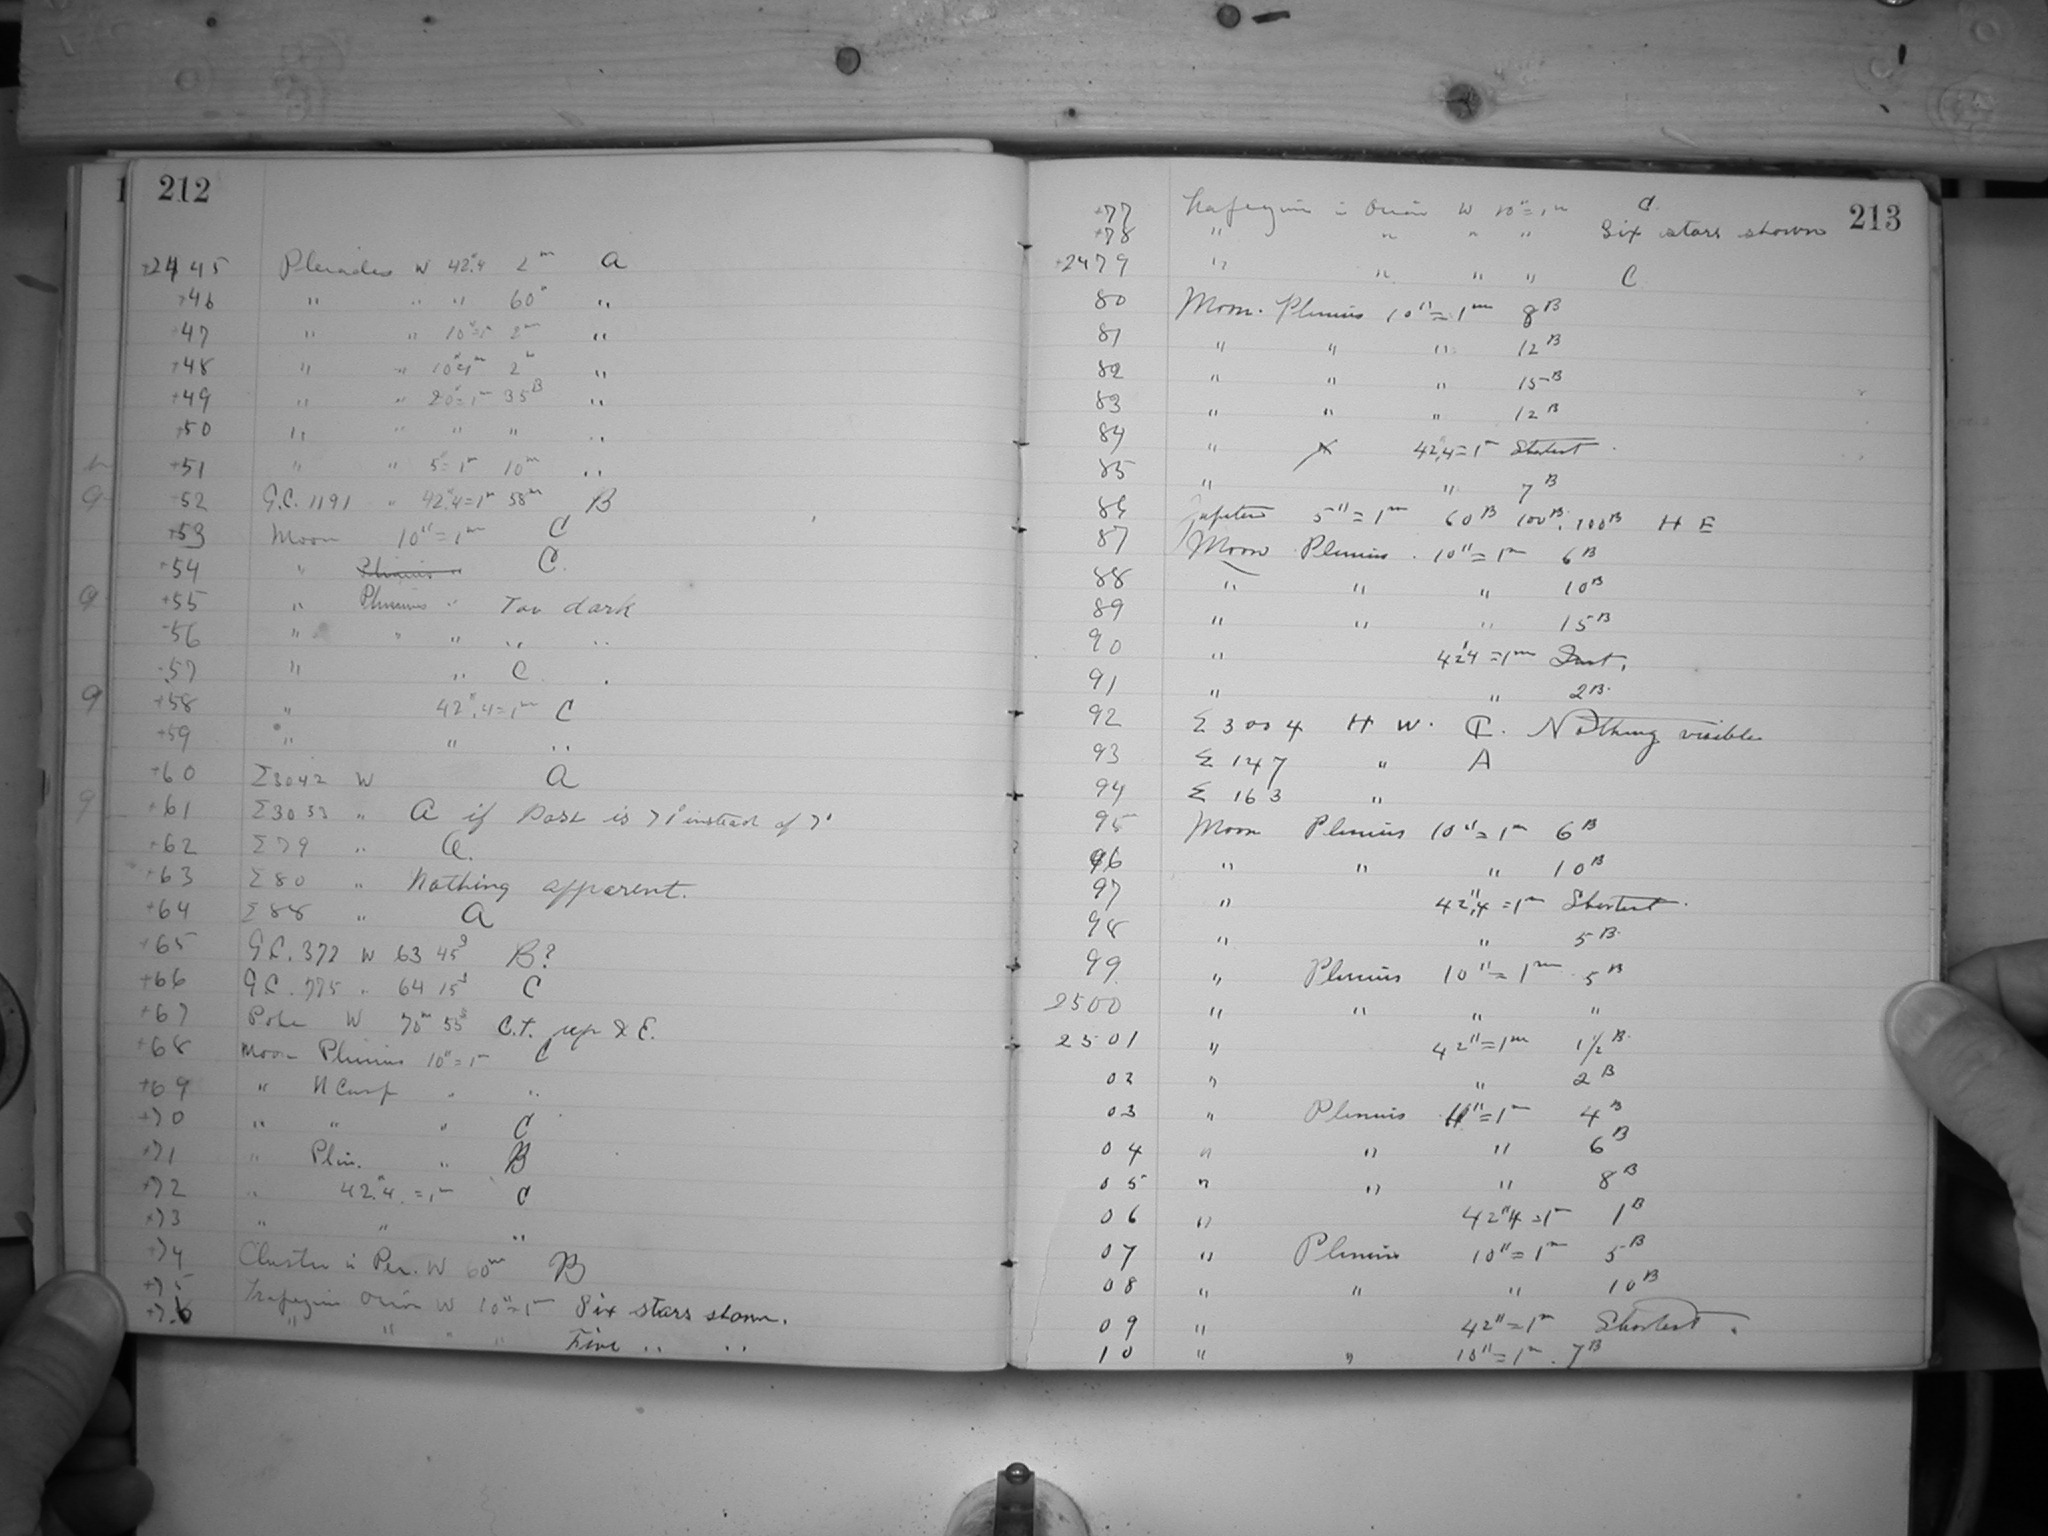 212
+2445 Pleiades W 42".4 2m A
+46 " " " 60" "
+47 " " 10"=1m 2m "
+48 " " 10"=1m 2m "
+49 " " 20"=1m 35B "
+50 " " " " "
+51 " " 5"=1m 10m "
+52 G.C. 1191 " 42".4=1m 58m B
+53 Moon 10"=1m C
+54 " Plinius " C.
+55 " Plinius " Too dark
-56 " " " " "
-57 " " C
+58 " 42".4=1m C
+59 " " "
+60 Σ3042 W A
+61 Σ3033 " A if Dark is 71° instead of 7°
+62 Σ79 " A.
+63 Σ80 " Nothing apparent.
+64 Σ88 " A
+65 G.C. 372 W 63 45s B?
+66 G.C. 775 " 64 15s C
+67 Pole W 70m 55s C.t. up & E.
+68 Moon Plinius 10"=1m C
+69 " N Cusp " "
+70 " " " C
+71 " Plin. " B
+72 " 42".4=1m C
+73 " " "
+74 Cluster in Per. W 60m B
+75 Trapezium Orion W 10"=1m Six stars shown.
+76 " " " " Five " "
213
+77 Trapezium in Orion W 10"=1m C
+78 " " " " Six stars shown
+2479 " " " " C
80 Moon. Plinius 10"=1m 8B
81 " " " 12B
82 " " " 15B
83 " " " 12B
84 " 42".4=1m Shortest.
85 " " 7B
86 Jupiter 5"=1m 60B 100B. 100B H E
87 Moon Plinius. 10"=1m 6B
88 " " " 10B
89 " " " 15B
90 " 42".4=1m Inst.
91 " " 2B.
92 Σ 3004 H W. C. Nothing visible
93 Σ 147 " A
94 Σ 163 "
95 Moon Plinius 10"=1m 6B
96 " " " 10B
97 " 42".4=1m Shortest.
98 " " 5B.
99. " Plinius 10"=1m. 5B
2500 " " " "
2501 " 42"=1m 1½B.
02 " " 2B
03 " Plinius 10"=1m 4B
04 " " " 6B
05 " " " 8B
06 " 42".4=1m 1B
07 " Plinius 10"=1m 5B
08 " " " 10B
09 " 42"=1m Shortest.
10 " " 10"=1m. 7B